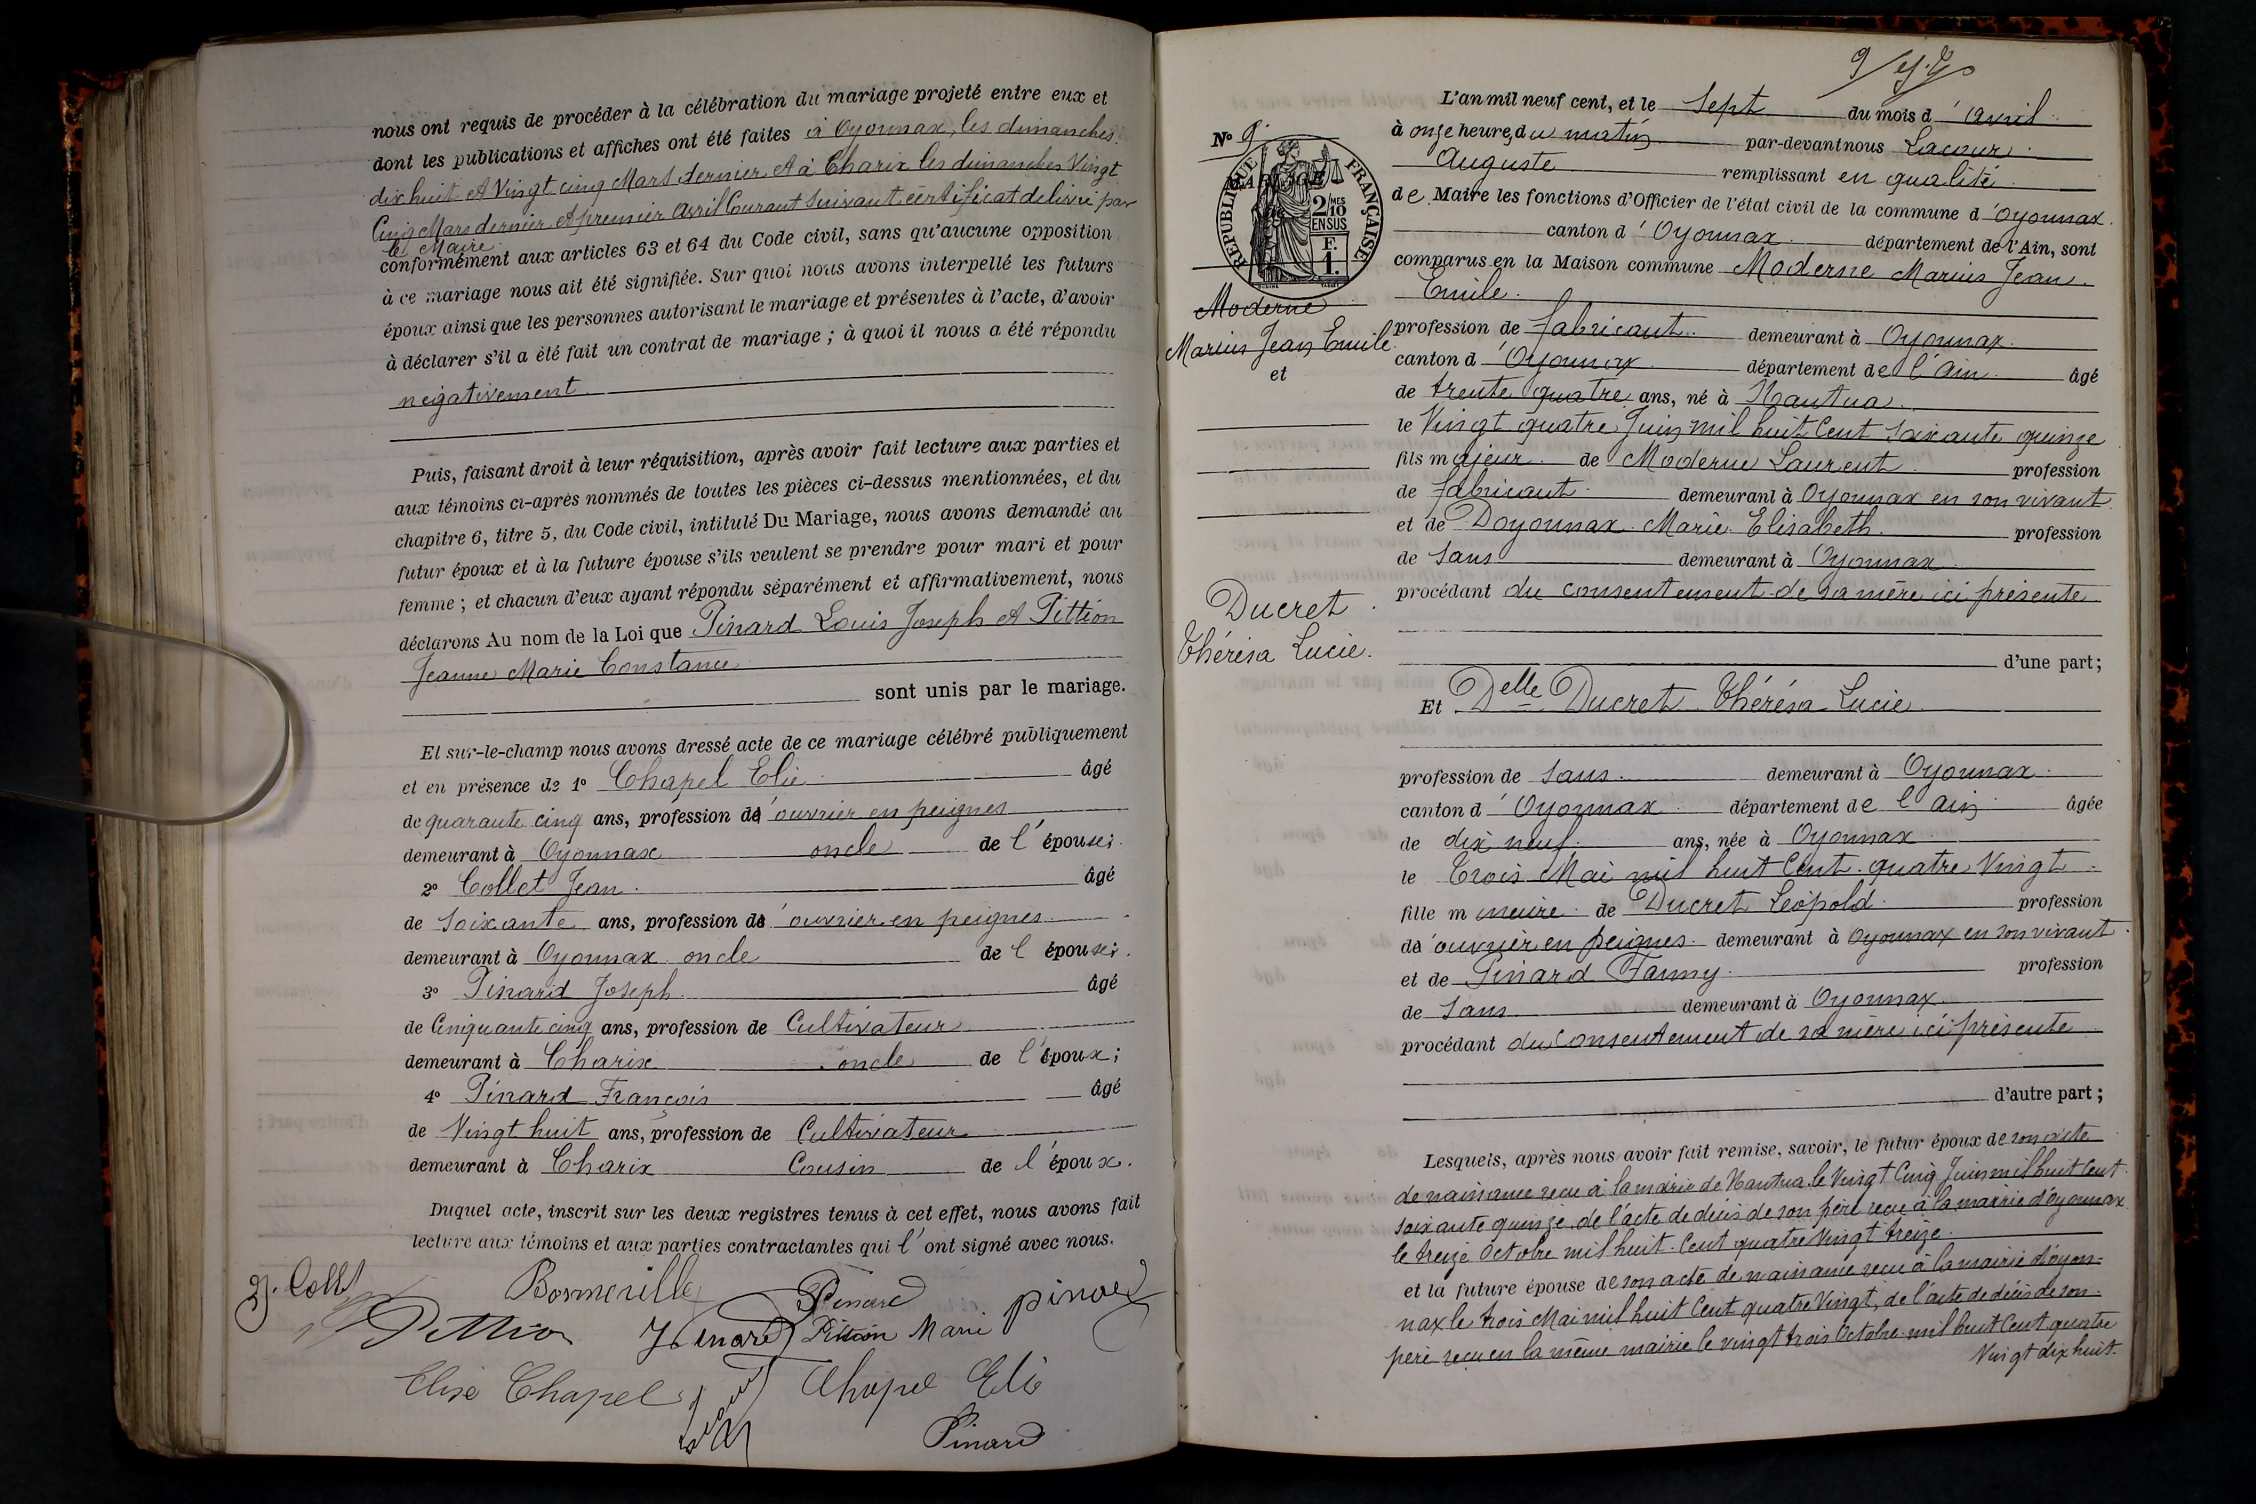 nous ont requis de procéder à la célébration du mariage projeté entre eux et
dont les publications et affiches ont été faites à Oyonnax, les dimanches
dix huit et Vingt cinq Mars dernier et à Charix les dimanches Vingt
Cinq Mars dernier et premier avril Courant suivant certificat delivré par
le Maire
conformément aux articles 63 et 64 du Code civil, sans qu'aucune opposition
à ce mariage nous ait été signifiée. Sur quoi nous avons interpellé les futurs
époux ainsi que les personnes autorisant le mariage et présentes à l'acte, d'avoir
à déclarer s'il a été fait un contrat de mariage ; à quoi il nous a été répondu
négativement
Puis, faisant droit à leur réquisition, après avoir fait lecture aux parties et
aux témoins ci-après nommés de toutes les pièces ci-dessus mentionnées, et du
chapitre 6, titre 5, du Code civil, intitulé Du Mariage, nous avons demandé au
futur époux et à la future épouse s'ils veulent se prendre pour mari et pour
femme ; et chacun d'eux ayant répondu séparément et affirmativement, nous
déclarons Au nom de la Loi que Pinard Louis Joseph et Pittion
Jeanne Marie Constance
sont unis par le mariage.
Et sur-le-champ nous avons dressé acte de ce mariage célébré publiquement
et en présence de 1º Chapel Elie âgé
de quarante cinq ans, profession d'ouvrier en peignes
demeurant à Oyonnax oncle de l'épouse;
2º Collet Jean âgé
de soixante ans, profession d'ouvrier en peignes
demeurant à Oyonnax oncle de l'épouse;
3º Pinard Joseph âgé
de Cinquante cinq ans, profession de Cultivateur
demeurant à Charix oncle de l'époux;
4º Pinard François âgé
de Vingt huit ans, profession de Cultivateur
demeurant à Charix Cousin de l'époux.
Duquel acte, inscrit sur les deux registres tenus à cet effet, nous avons fait
lecture aux témoins et aux parties contractantes qui l'ont signé avec nous.
J. Collet Bonneville Pinard
Pittion J Pinard Pittion Marie pinard
Elise Chapel Chapel Elie
Pinard
9
Nº 9.
RÉPUBLIQUE FRANÇAISE
MARIAGE
2/10 MES
EN SUS
F.
1.
Moderne
Marius Jean Emile
et
Ducret
Thérésa Lucie.
L'an mil neuf cent, et le Sept du mois d'avril
à onze heures du matin par-devant nous Lacour
Auguste remplissant en qualité
de Maire les fonctions d'Officier de l'état civil de la commune d'Oyonnax
canton d'Oyonnax département de l'Ain, sont
comparus en la Maison commune Moderne Marius Jean
Emile.
profession de fabricant demeurant à Oyonnax
canton d'Oyonnax département de l'Ain âgé
de trente quatre ans, né à Nantua
le Vingt quatre Juin mil huit Cent soixante quinze
fils majeur de Moderne Laurent profession
de fabricant demeurant à Oyonnax en son vivant
et de Doyonnax Marie Elisabeth profession
de sans demeurant à Oyonnax
procédant du consentement de sa mère ici présente
d'une part;
Et Delle Ducret Thérésa Lucie
profession de sans demeurant à Oyonnax
canton d'Oyonnax département de l'Ain âgée
de dix neuf ans, née à Oyonnax
le Trois Mai mil huit Cent quatre Vingt
fille mineure de Ducret Léopold profession
d'ouvrier en peignes demeurant à Oyonnax en son vivant
et de Pinard Fanny profession
de sans demeurant à Oyonnax
procédant du consentement de sa mère ici présente
d'autre part;
Lesquels, après nous avoir fait remise, savoir, le futur époux de son acte
de naissance reçu à la mairie de Nantua le Vingt Cinq Juin mil huit Cent
soixante quinze, de l'acte de décès de son père reçu à la mairie d'Oyonnax
le treize Octobre mil huit Cent quatre Vingt treize.
et la future épouse de son acte de naissance reçu à la mairie d'Oyon-
nax le trois Mai mil huit Cent quatre Vingt, de l'acte de décès de son
père reçu en la même mairie le vingt trois Octobre mil huit Cent quatre
Vingt dix huit.